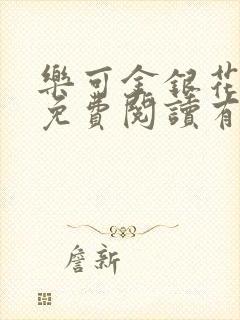 樂可金銀花
免費閱讀有
詹新